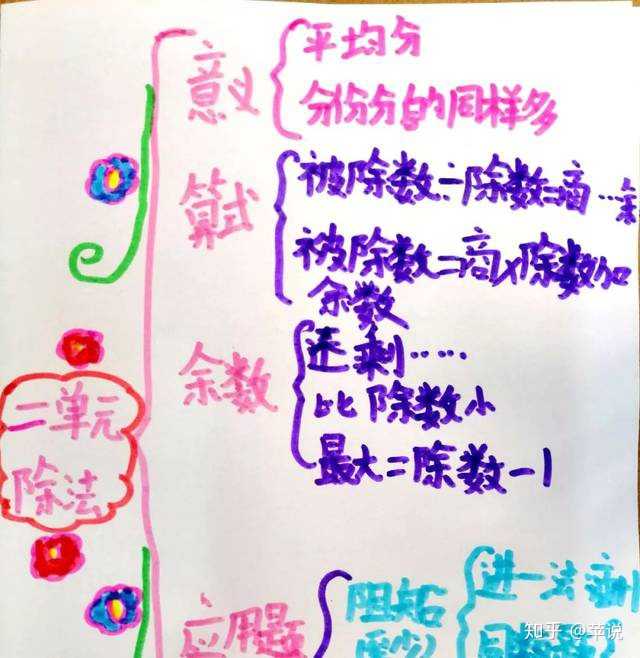 意义
平均分
分份分的同样多
算式
被除数÷除数=商…余
被除数=商×除数加
余数
余数
还剩……
比除数小
最大=除数-1
二单元
除法
应用题
进一法
知乎 @苹说